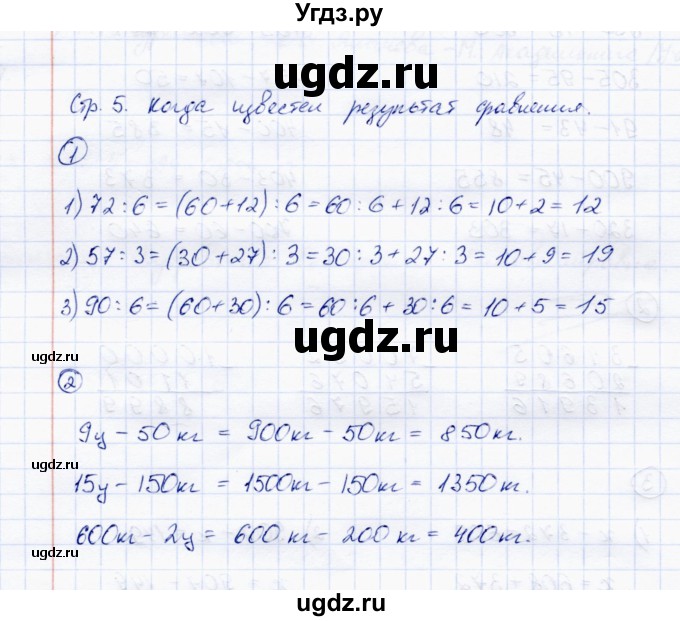 Угдз.ру
ugdz.ru
Стр. 5. Когда известен результат сравнения.
1
1) 72 : 6 = (60 + 12) : 6 = 60 : 6 + 12 : 6 = 10 + 2 = 12
2) 57 : 3 = (30 + 27) : 3 = 30 : 3 + 27 : 3 = 10 + 9 = 19
3) 90 : 6 = (60 + 30) : 6 = 60 : 6 + 30 : 6 = 10 + 5 = 15
ugdz.ru
ugdz.ru
ugdz.ru
2
9ц - 50 кг = 900кг - 50кг = 850кг.
ugdz.ru
15ц - 150кг = 1500кг - 150кг = 1350кг.
600кг - 2ц = 600 кг - 200 кг = 400кг.
ugdz.ru
ugdz.ru